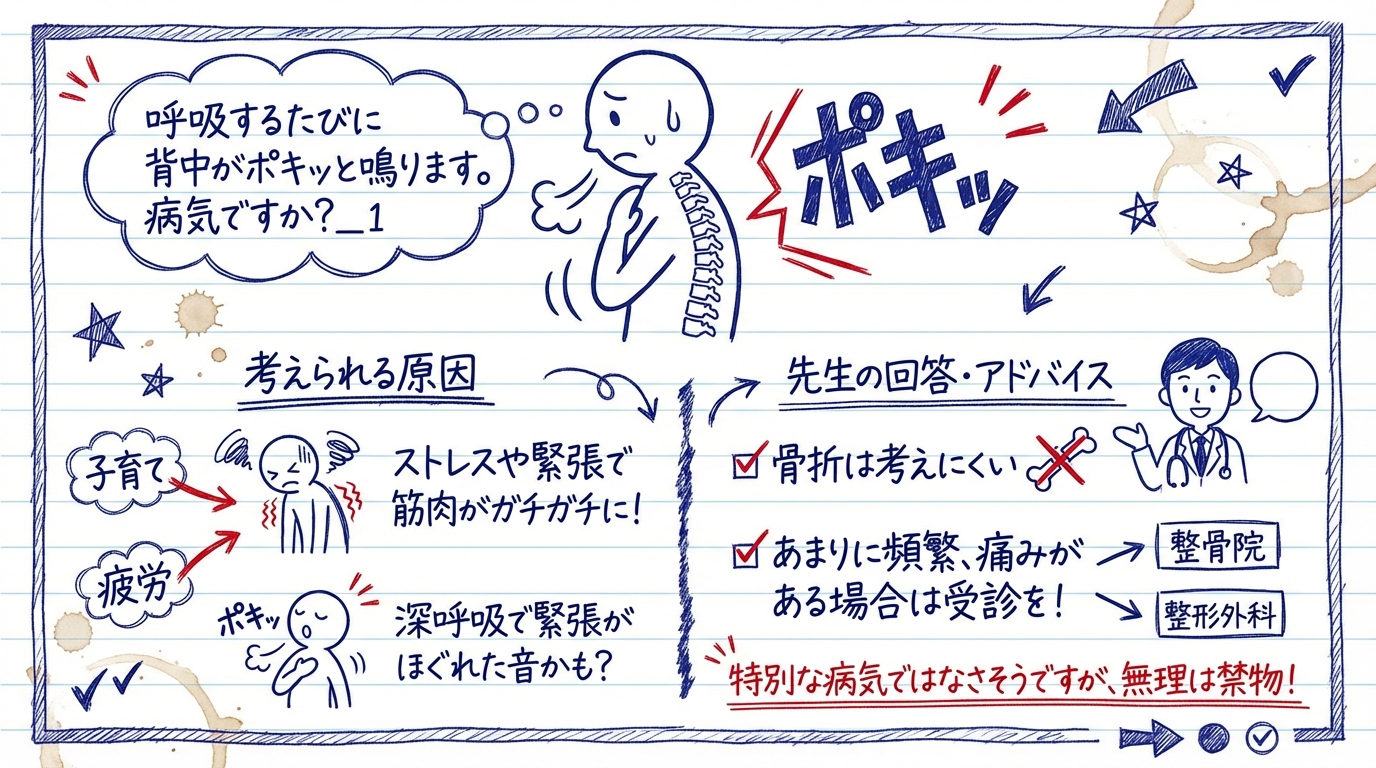 呼吸するたびに
背中がポキッと鳴ります。
病気ですか?_1
ポキッ
考えられる原因
子育て
疲労
ストレスや緊張で
筋肉がガチガチに!
ポキッ
深呼吸で緊張が
ほぐれた音かも?
先生の回答・アドバイス
骨折は考えにくい
あまりに頻繁、痛みが
ある場合は受診を!
整骨院
整形外科
特別な病気ではなさそうですが、無理は禁物!